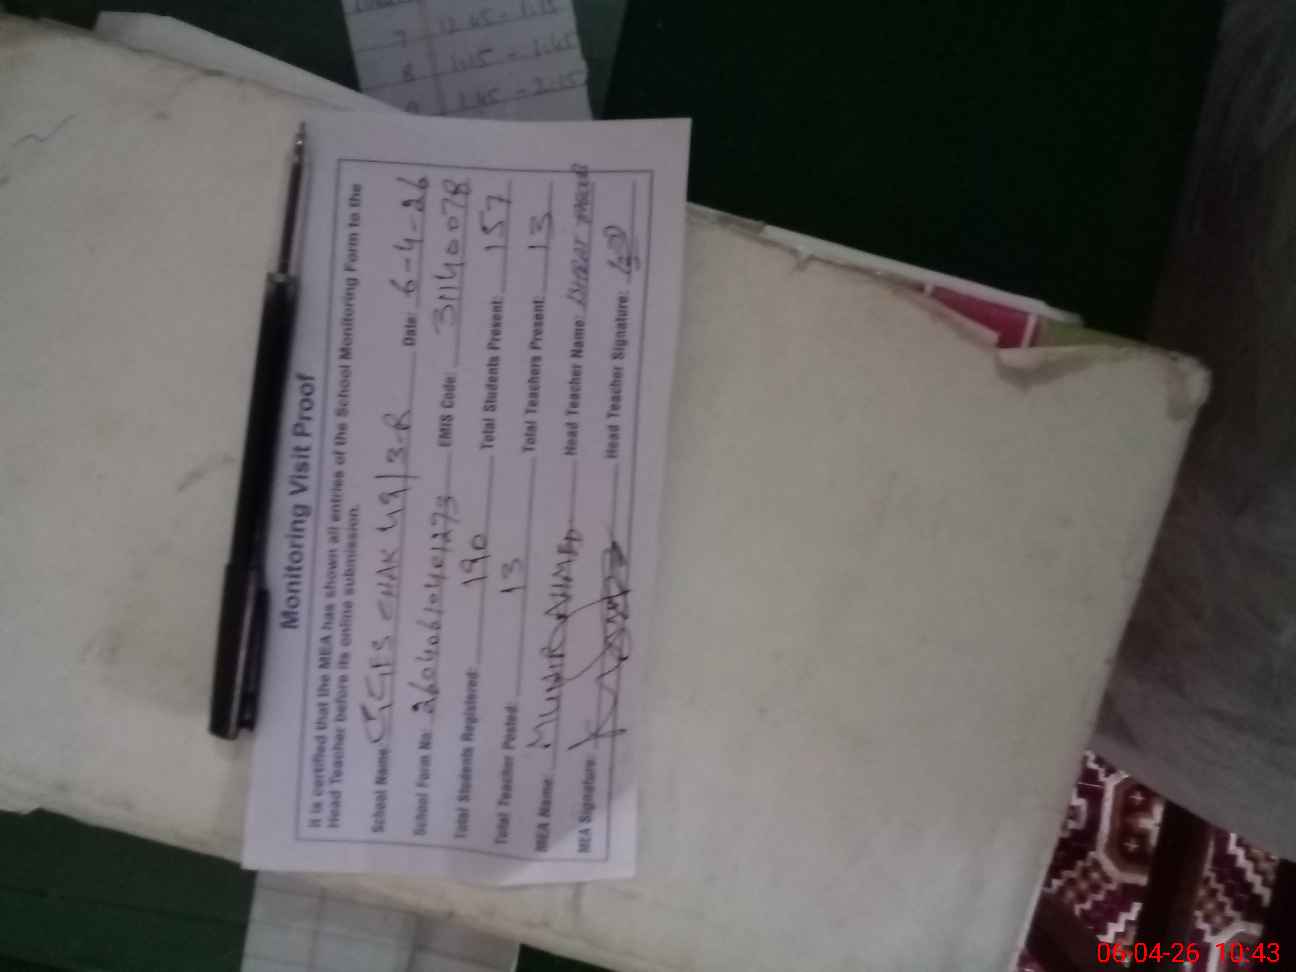 12.45 - 1.15
7
8 1.15 - 1.45
9 1.45 - 2.15
Monitoring Visit Proof
It is certified that the MEA has shown all entries of the School Monitoring Form to the
Head Teacher before its online submission.
School Name: GGES CHAK 49/3-R Date: 6-4-26
School Form No: 26040610401273 EMIS Code: 31140078
Total Students Registered: 190 Total Students Present: 157
Total Teacher Posted: 13 Total Teachers Present: 13
MEA Name: MUNIR AHMED Head Teacher Name:
MEA Signature: Head Teacher Signature:
06-04-26 10:43